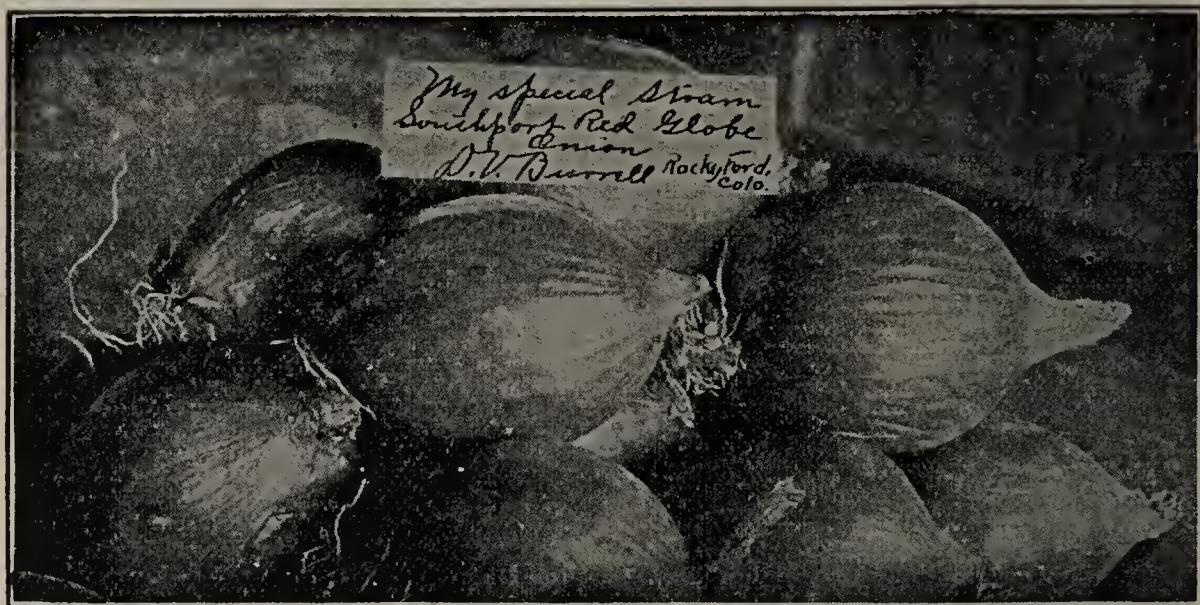 My special Strain
Southport Red Globe
Onion
D.V. Burrell Rocky Ford,
Colo.